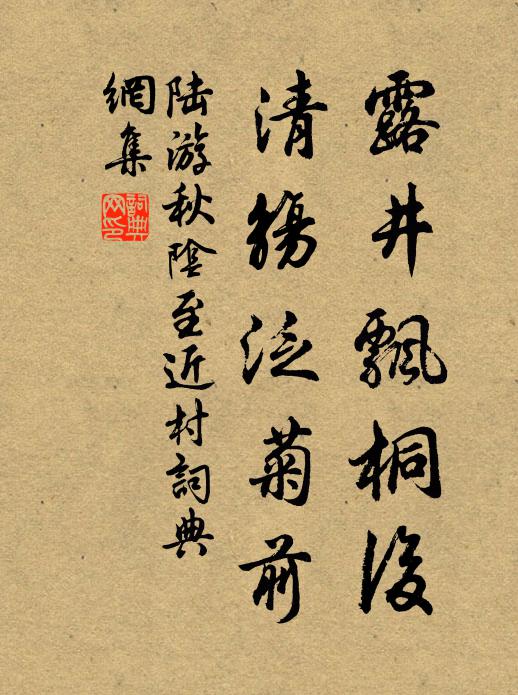 露井飄桐後
清觴泛菊前
陸游秋陰至近村詞典
網集
詞典
网印